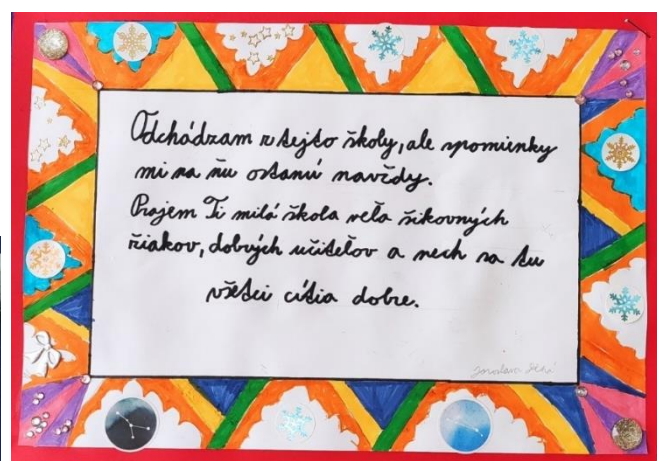 Odchádzam z tejto školy, ale spomienky
mi na ňu ostanú navždy.
Prajem Ti milá škola veľa šikovných
žiakov, dobrých učiteľov a nech sa tu
všetci cítia dobre.